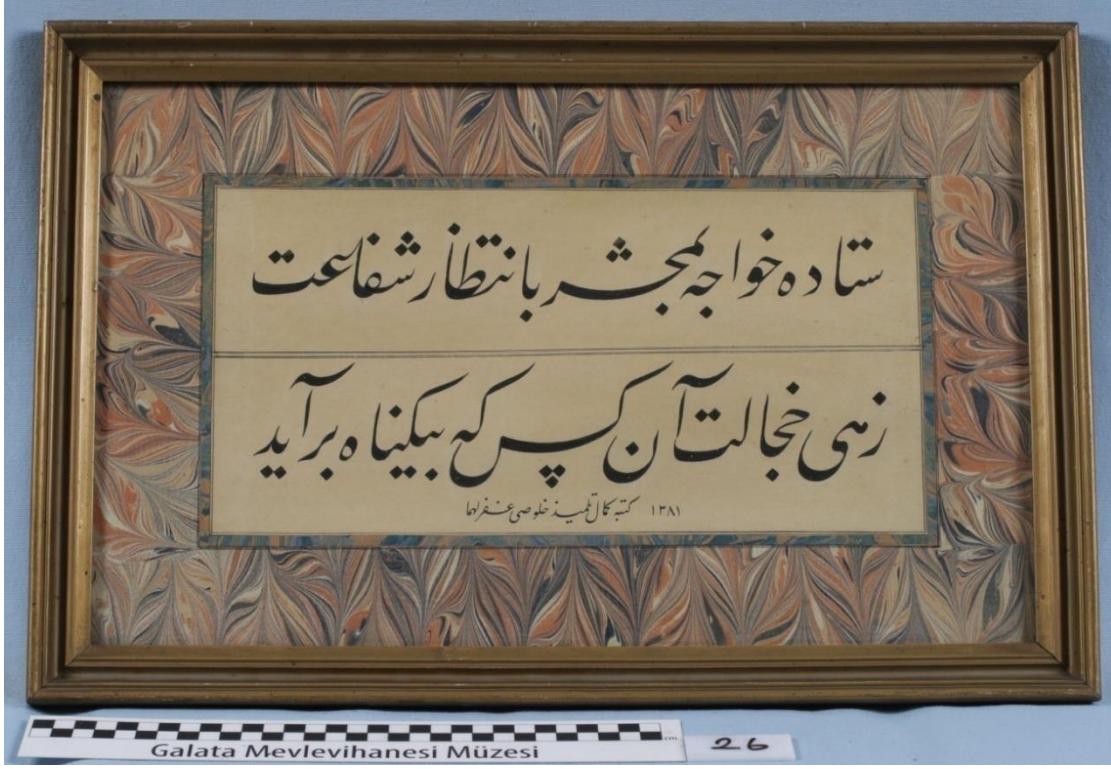 ستاده خواجه بمحشر بانتظار شفاعت
زهی خجالت آن کس که بیکناه برآید
١٣٨١ کتبه کمال تلمیذ خلوصی غفر لهما
cm
Galata Mevlevihanesi Müzesi
26